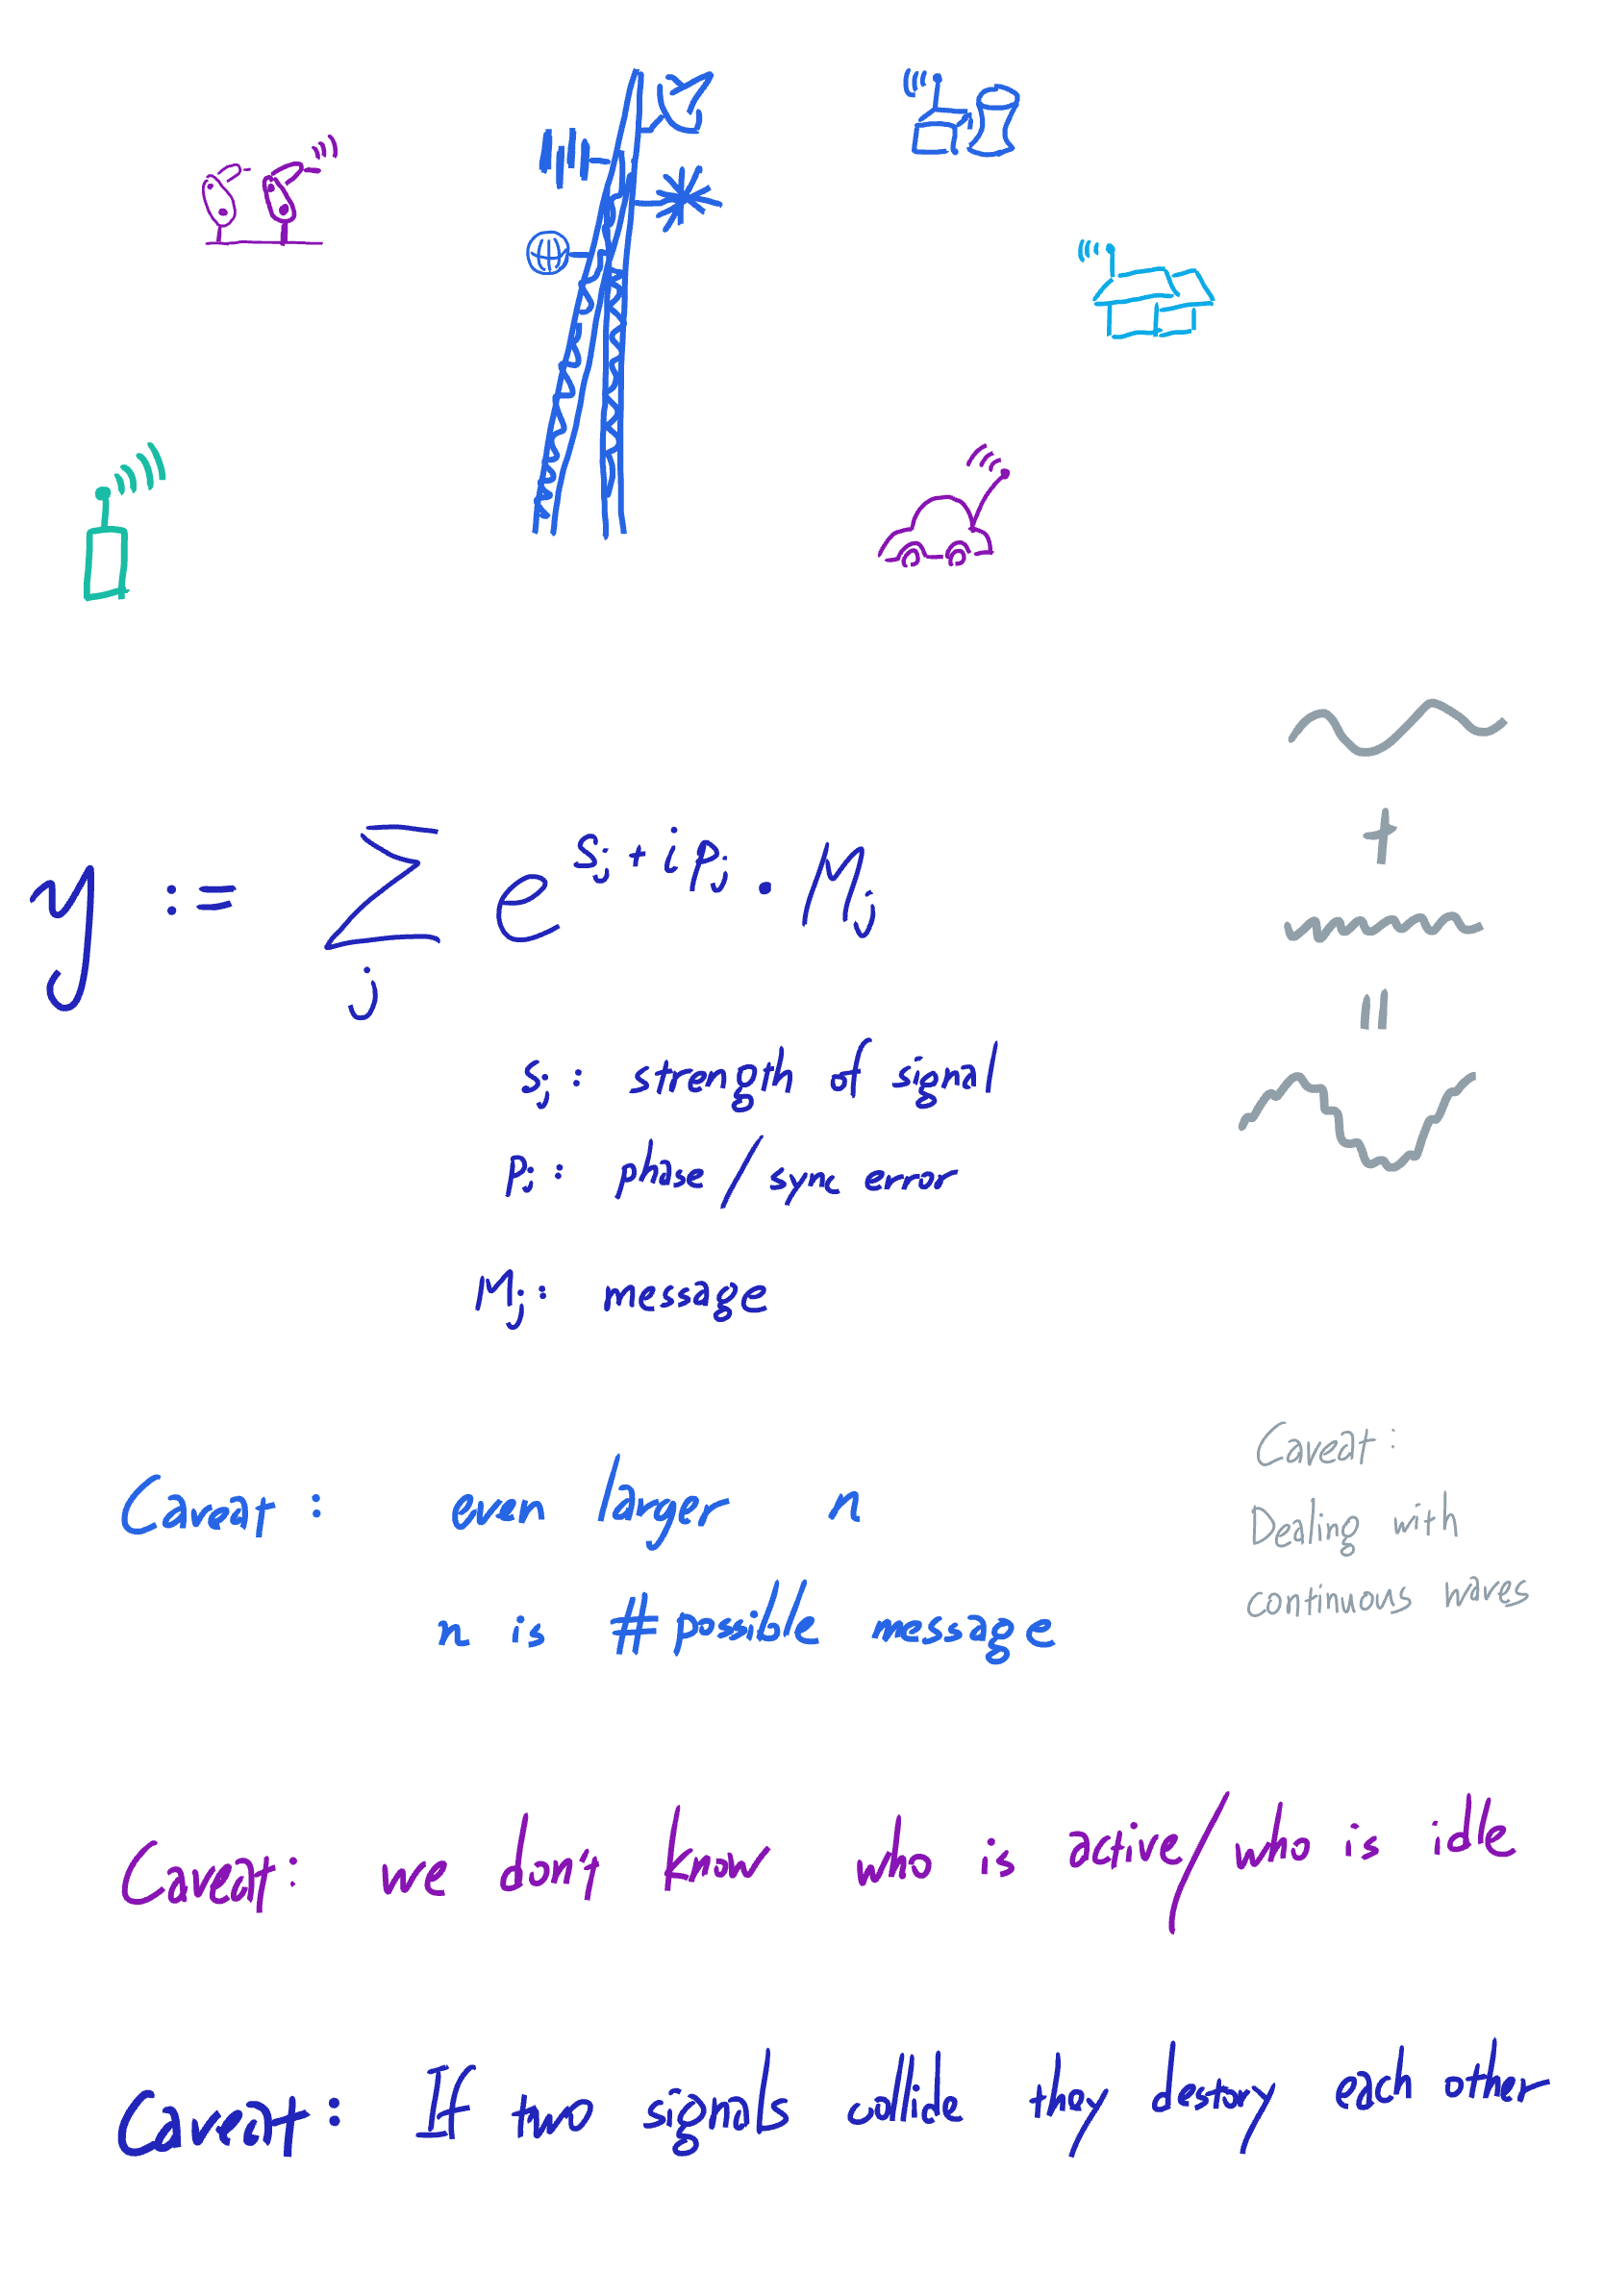 y := ∑_j e^{s_j + i p_j} · M_j
s_j : strength of signal
p_j : phase / sync error
M_j : message
+
=
Caveat : even larger n
n is # possible message
Caveat :
Dealing with
continuous waves
Caveat: we don't know who is active/who is idle
Caveat: If two signals collide they destory each other